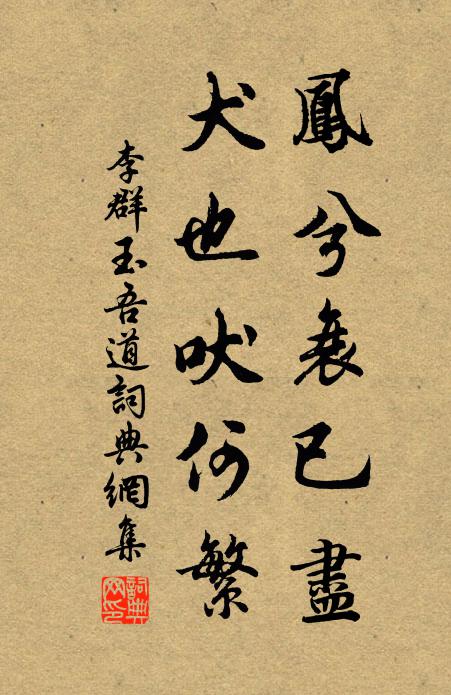 鳳兮衰已盡
犬也吠何繁
李群玉吾道詞典網集
詞典网印